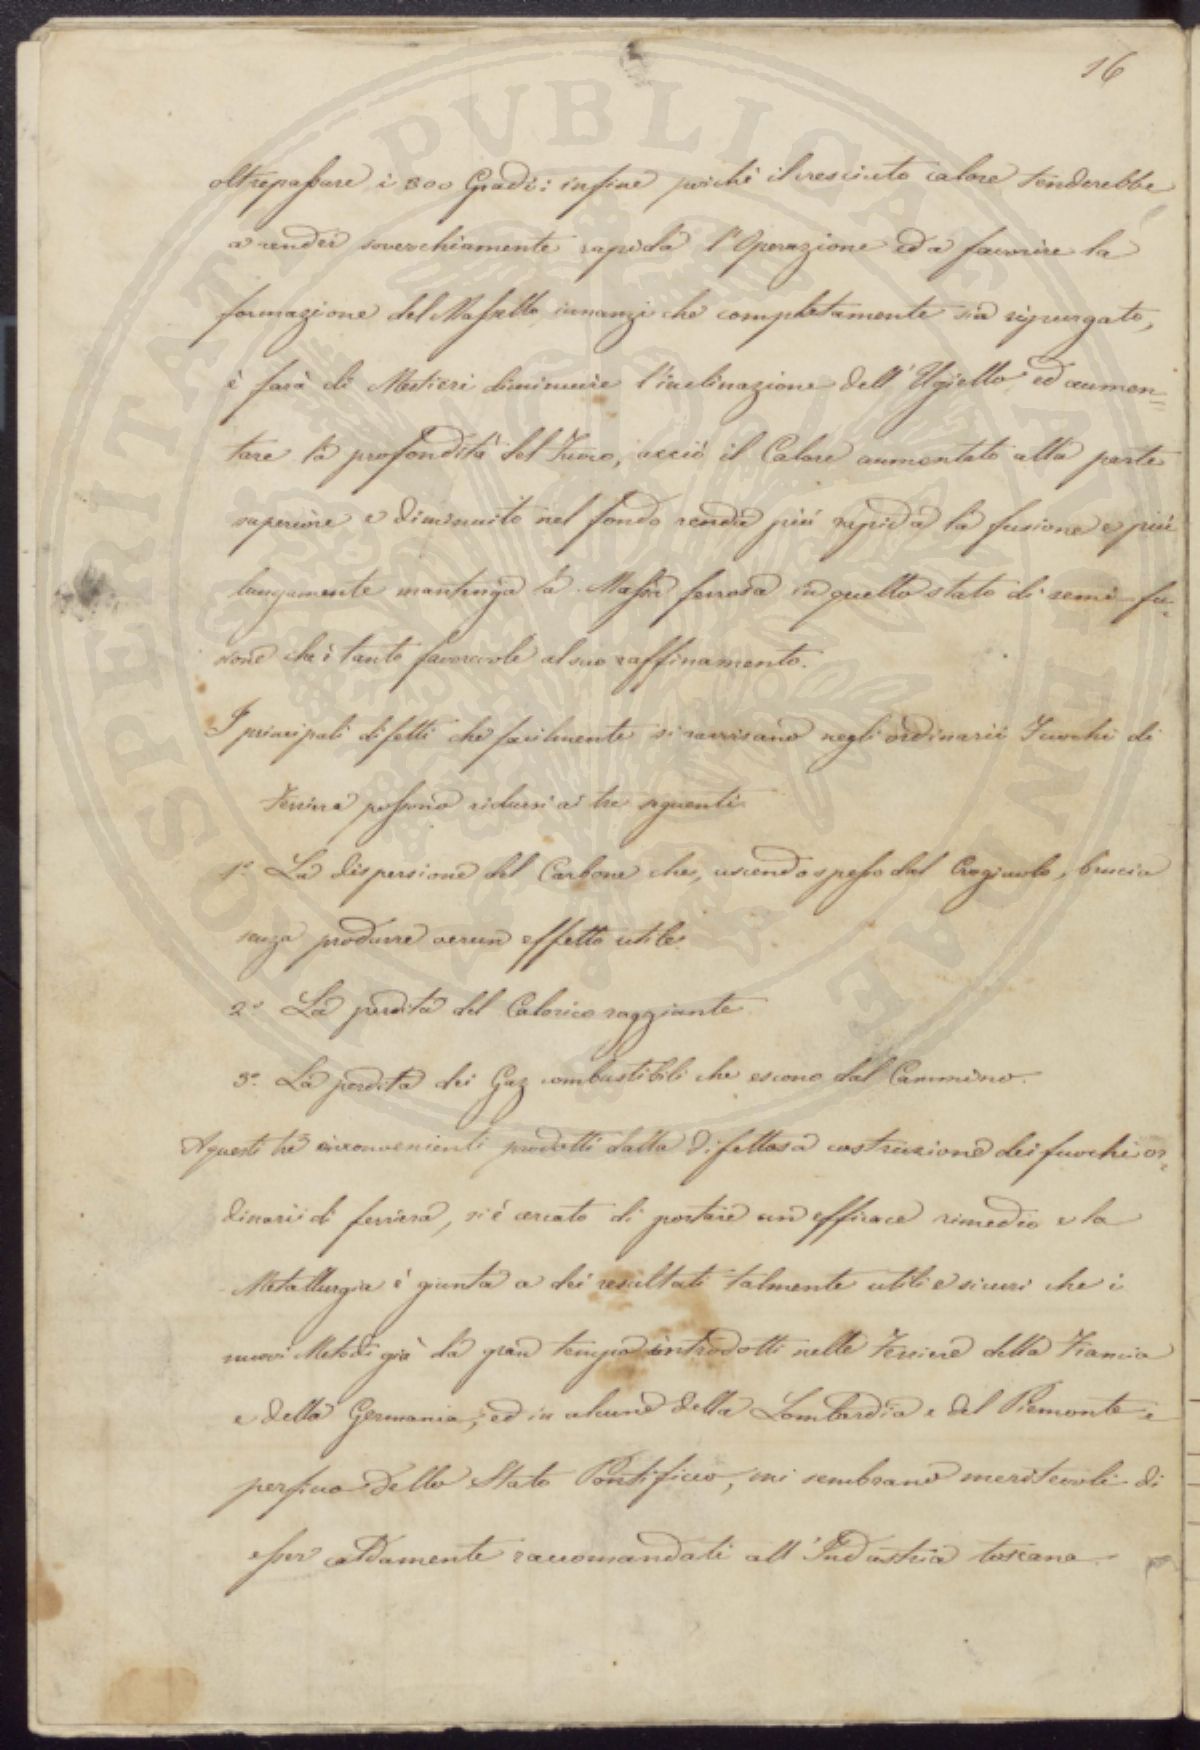 16
oltrepassare i 300 Gradi: infine poichè il cresciuto calore tenderebbe
a render soverchiamente rapida l'Operazione ed a favorire la
formazione del Massello innanzi che completamente sia ripurgato,
è farà di Mestieri diminuire l'inclinazione dell'Ugjello, ed aumen=
tare la profondità del Fuoco, acciò il Calore aumentato alla parte
superiore e diminuito nel fondo renda più rapida la fusione e più
lungamente mantenga la Massa ferrosa in quello stato di semi-fu=
sione che è tanto favorevole al suo raffinamento.
I principali difetti che facilmente si ravvisano negli ordinarii Fuochi di
Ferriera possono ridursi ai tre seguenti
1° La dispersione del Carbone che, uscendo spesso dal Crogiuolo, brucia
senza produrre verun effetto utile
2° La perdita del Calorico raggiante
3° La perdita dei Gaz combustibili che escono dal Cammino.
A questi tre inconvenienti prodotti dalla difettosa costruzione dei fuochi or=
dinarii di ferriera, si è cercato di portare un efficace rimedio e la
Metallurgia è giunta a dei resultati talmente utili e sicuri che i
nuovi Metodi già da gran tempo introdotti nelle Ferriere della Francia
e della Germania, ed in alcune della Lombardia e del Piemonte e
perfino dello Stato Pontificio, mi sembrano meritevoli di
esser caldamente raccomandati all'Industria toscana.
PUBLICAE
PROSPERITATI
AUGENDAE